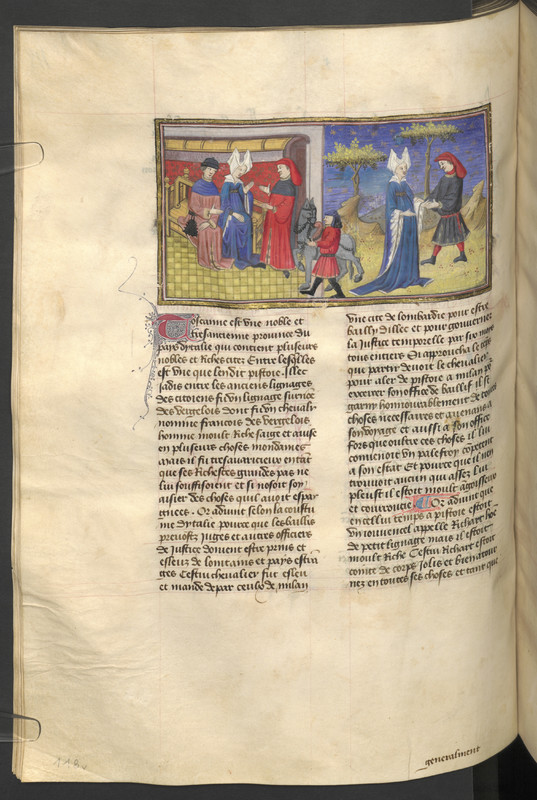 Toscanne est une noble et
tresancienne province du
pays dytalie qui contient pluseurs
nobles et Riches citez Entre lesqlles
est une que len dit pistoie. Illec
jadis entre les anciens lignages
des citoiens fu un lignage surnõe
des vergelois dont fu un chevalr
nomme francois des vergelois
homme moult Riche saige et auise
en pluseurs choses mondaines
mais il fu tresauaricieux entãt
que ses Richesses grandes pas ne
lui souffisoient et si nosoit soy
aisier des choses quil auoit espar
gniees. Or aduint selon la coustu
me dytalie pource que les baillis
preuostz Juges et autres officiers
de Justice doiuent estre prins et
esleuz de lointains et pays estrã
ges Cestui chevalier fut esleu
et mande de par ceulx de milan
une cite de lombardie pour estre
bailly dillec et pour gouuerner
la Justice temporelle par six moys
tous entiers Si approucha le iour
que partir deuoit le chevalier
pour aler de pistoie a milan po
excercer son office de baillif il se
garny honnourablement de toutes
choses necessaires et auenans a
son voyage et aussi a son office
Fors que oultre ces choses il lui
conuenoit un palefroy cõpetent
a son estat Et pource que il nen
trouuoit aucun qui assez lui
pleust il estoit moult angoisseux
et courroucie Or aduint que
en cellui temps a pistoie estoit
un iouuencel appelle Richart hõe
de petit lignage mais il estoit
moult Riche Cestui Richart estoit
cointe de corps Jolis et bien atour
nez en toutes ses choses et tant que
generalment
118